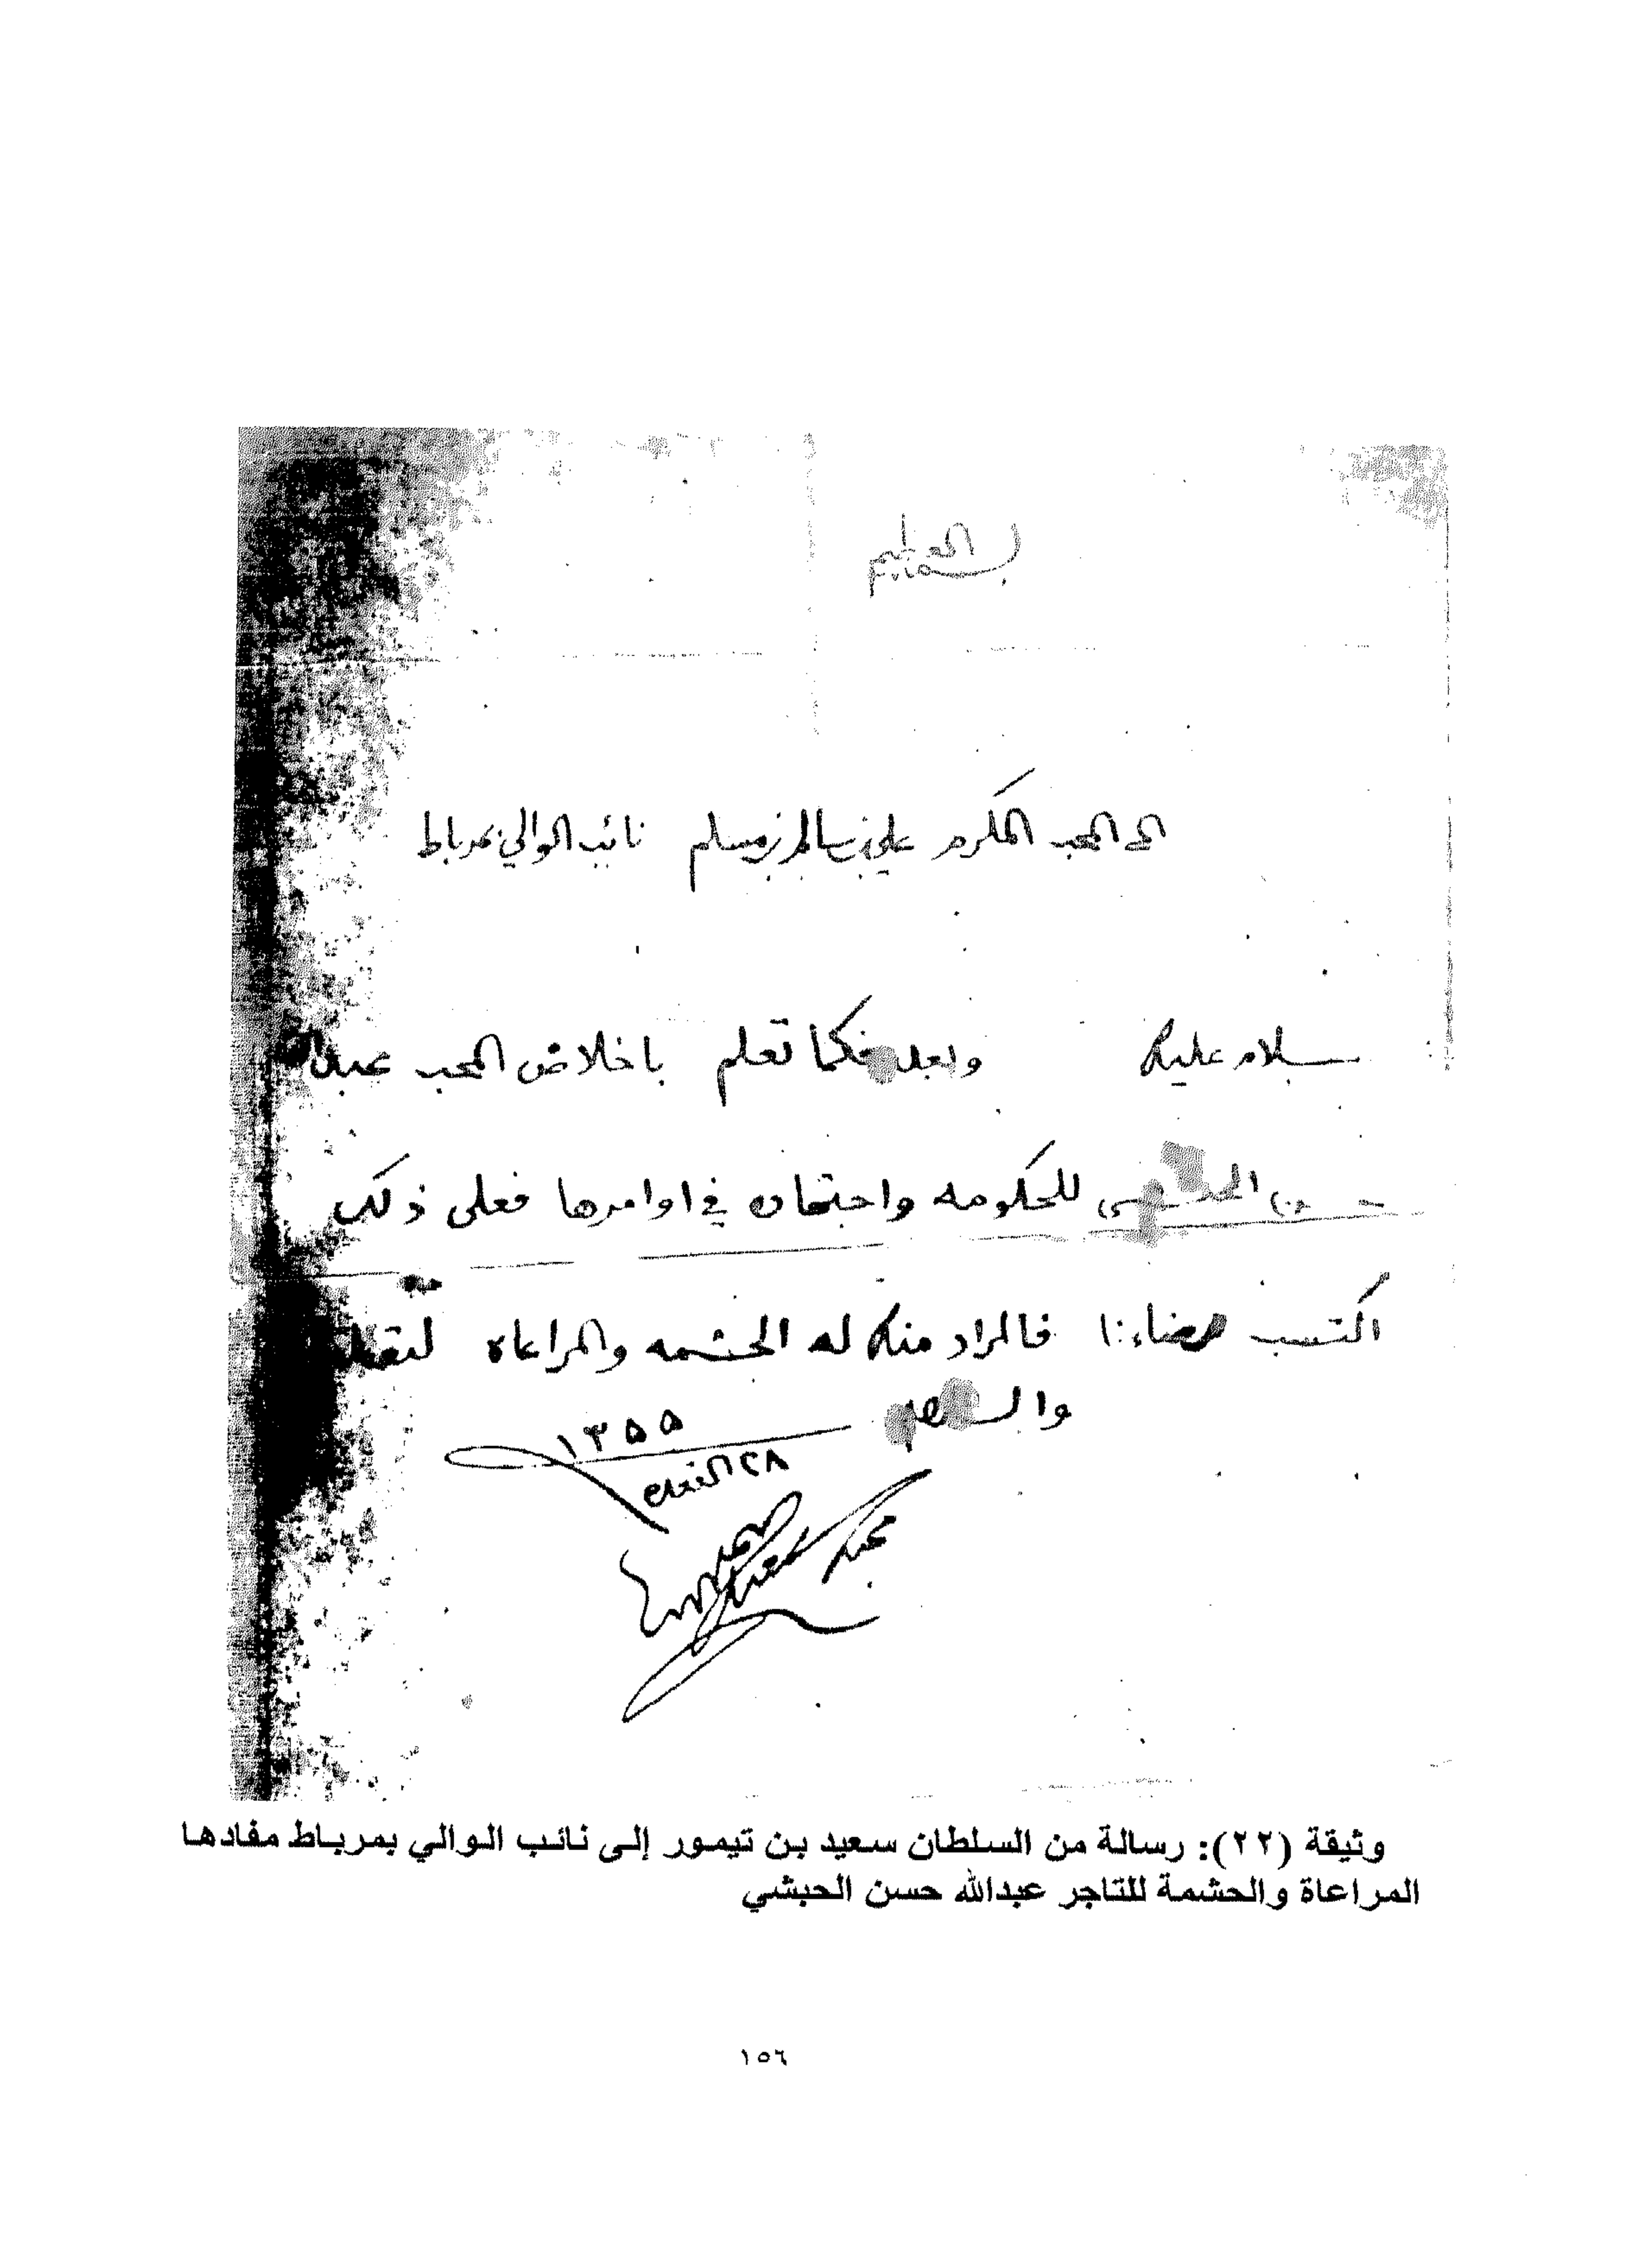 بسم الله العظيم
الى المحب المكرم علي بن سالم بن مسلم نائب الوالي بمرباط
سلام عليك وبعد فكما تعلم باخلاص المحب عبدالله
حسن الحبشي للحكومه واجتهاده في اوامرها فعلى ذلك
اكتسب رضاءنا فالمراد منك له الحشمه والمراعاه
والسلام
١٣٥٥
٢٨ القعدة
محبك سعيد بن تيمور
وثيقة (٢٢): رسالة من السلطان سعيد بن تيمور إلى نائب الوالي بمرباط مفادها
المراعاة والحشمة للتاجر عبدالله حسن الحبشي
١٥٦